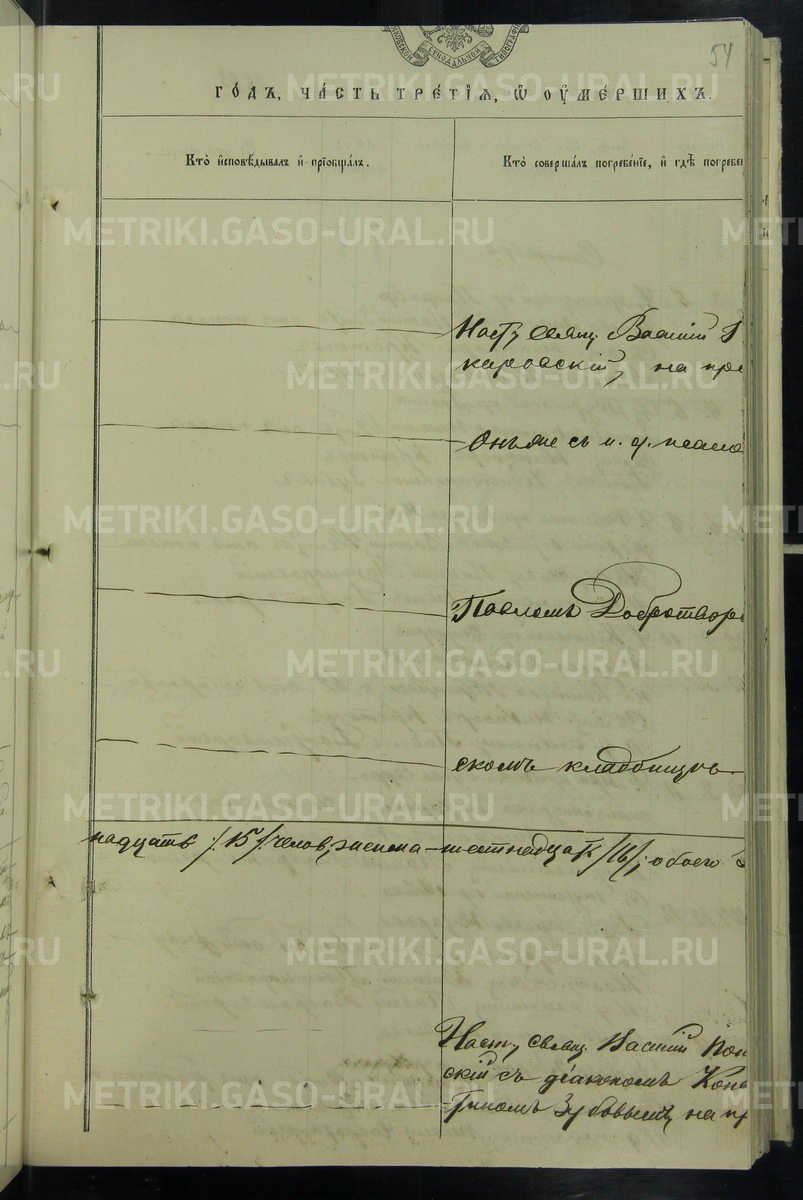 54
СѴНОДАЛЬНОЙ
ТИПОГРАФІИ
ГО́ДЪ, ЧА́СТЬ ТРЕ́ТІѦ, Ѡ҆ ОУ҆МЕ́РШИХЪ.
Кто̀ и҆сповѣ́дывалъ и҆ прїобща́лъ.
Кто̀ соверша́лъ погребе́нїе, и҆ гдѣ̀ погребе
Наст, Свящ. Василій
каровскій, на пр
Онъ же съ и. д. псало
Павломъ Добротвор
скомъ кладбищѣ.
надцать /15/ челов, женска – шестнадцать /16/; обоего
Наст, Свящ. Василій Пон
скій съ діакономъ Кон
тиномъ Зубовымъ, на пр
METRIKI.GASO-URAL.RU